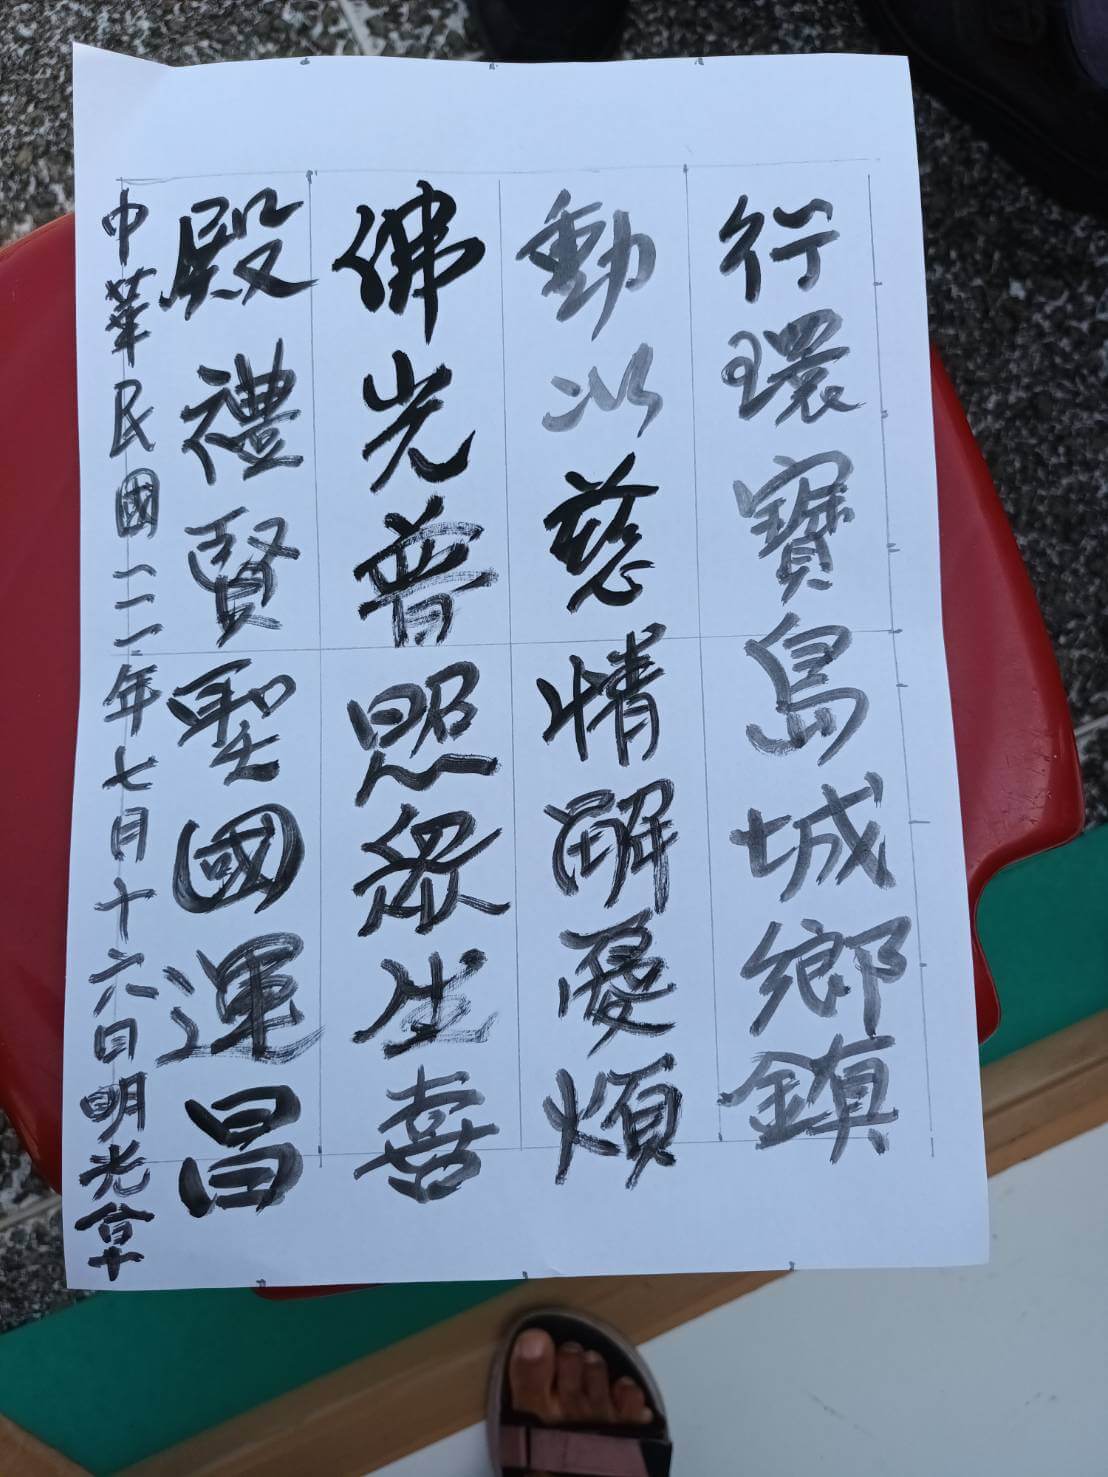 行環寶島城鄉鎮
動以慈情解憂煩
佛光普照眾生喜
殿禮賢聖國運昌
中華民國一一一年七月十六日明光章